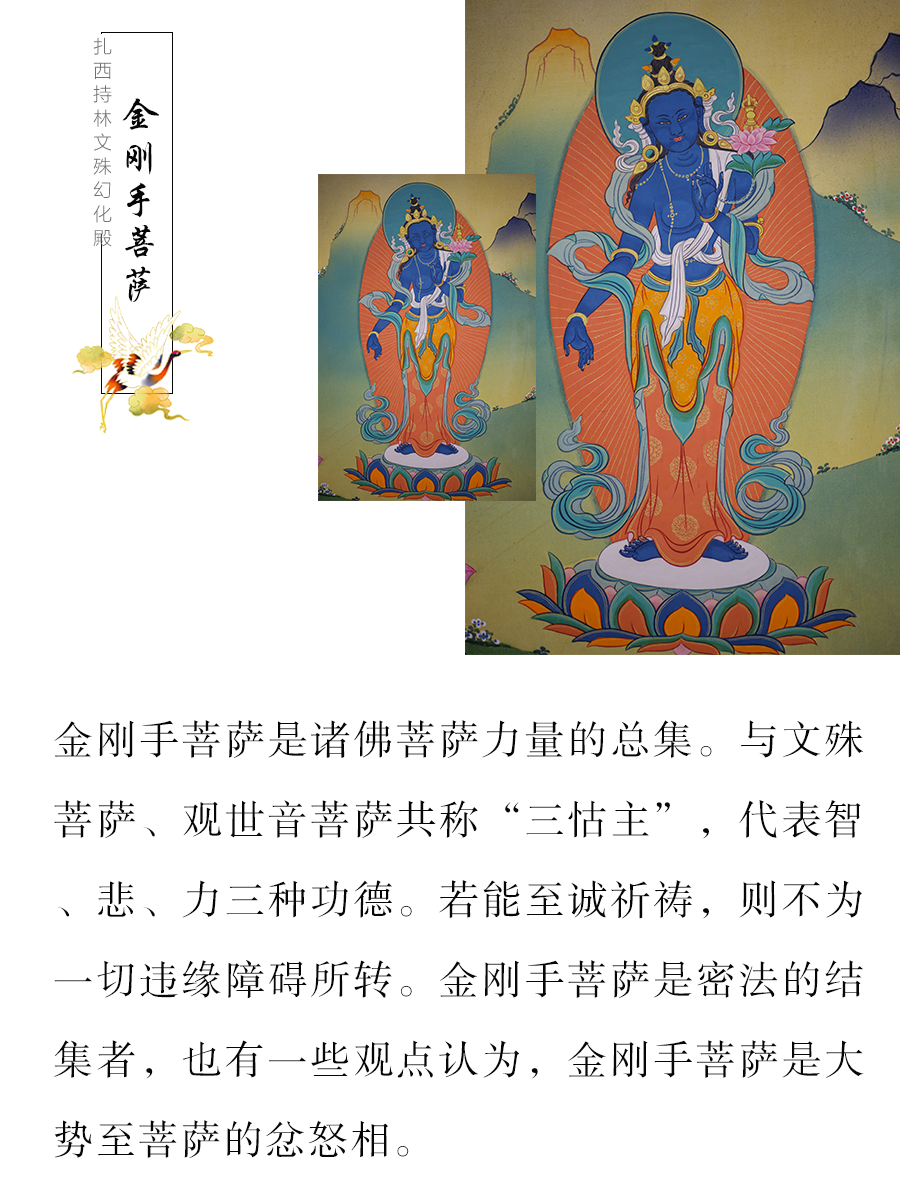 扎西持林文殊幻化殿
金刚手菩萨
金刚手菩萨是诸佛菩萨力量的总集。与文殊
菩萨、观世音菩萨共称“三怙主”，代表智
、悲、力三种功德。若能至诚祈祷，则不为
一切违缘障碍所转。金刚手菩萨是密法的结
集者，也有一些观点认为，金刚手菩萨是大
势至菩萨的忿怒相。